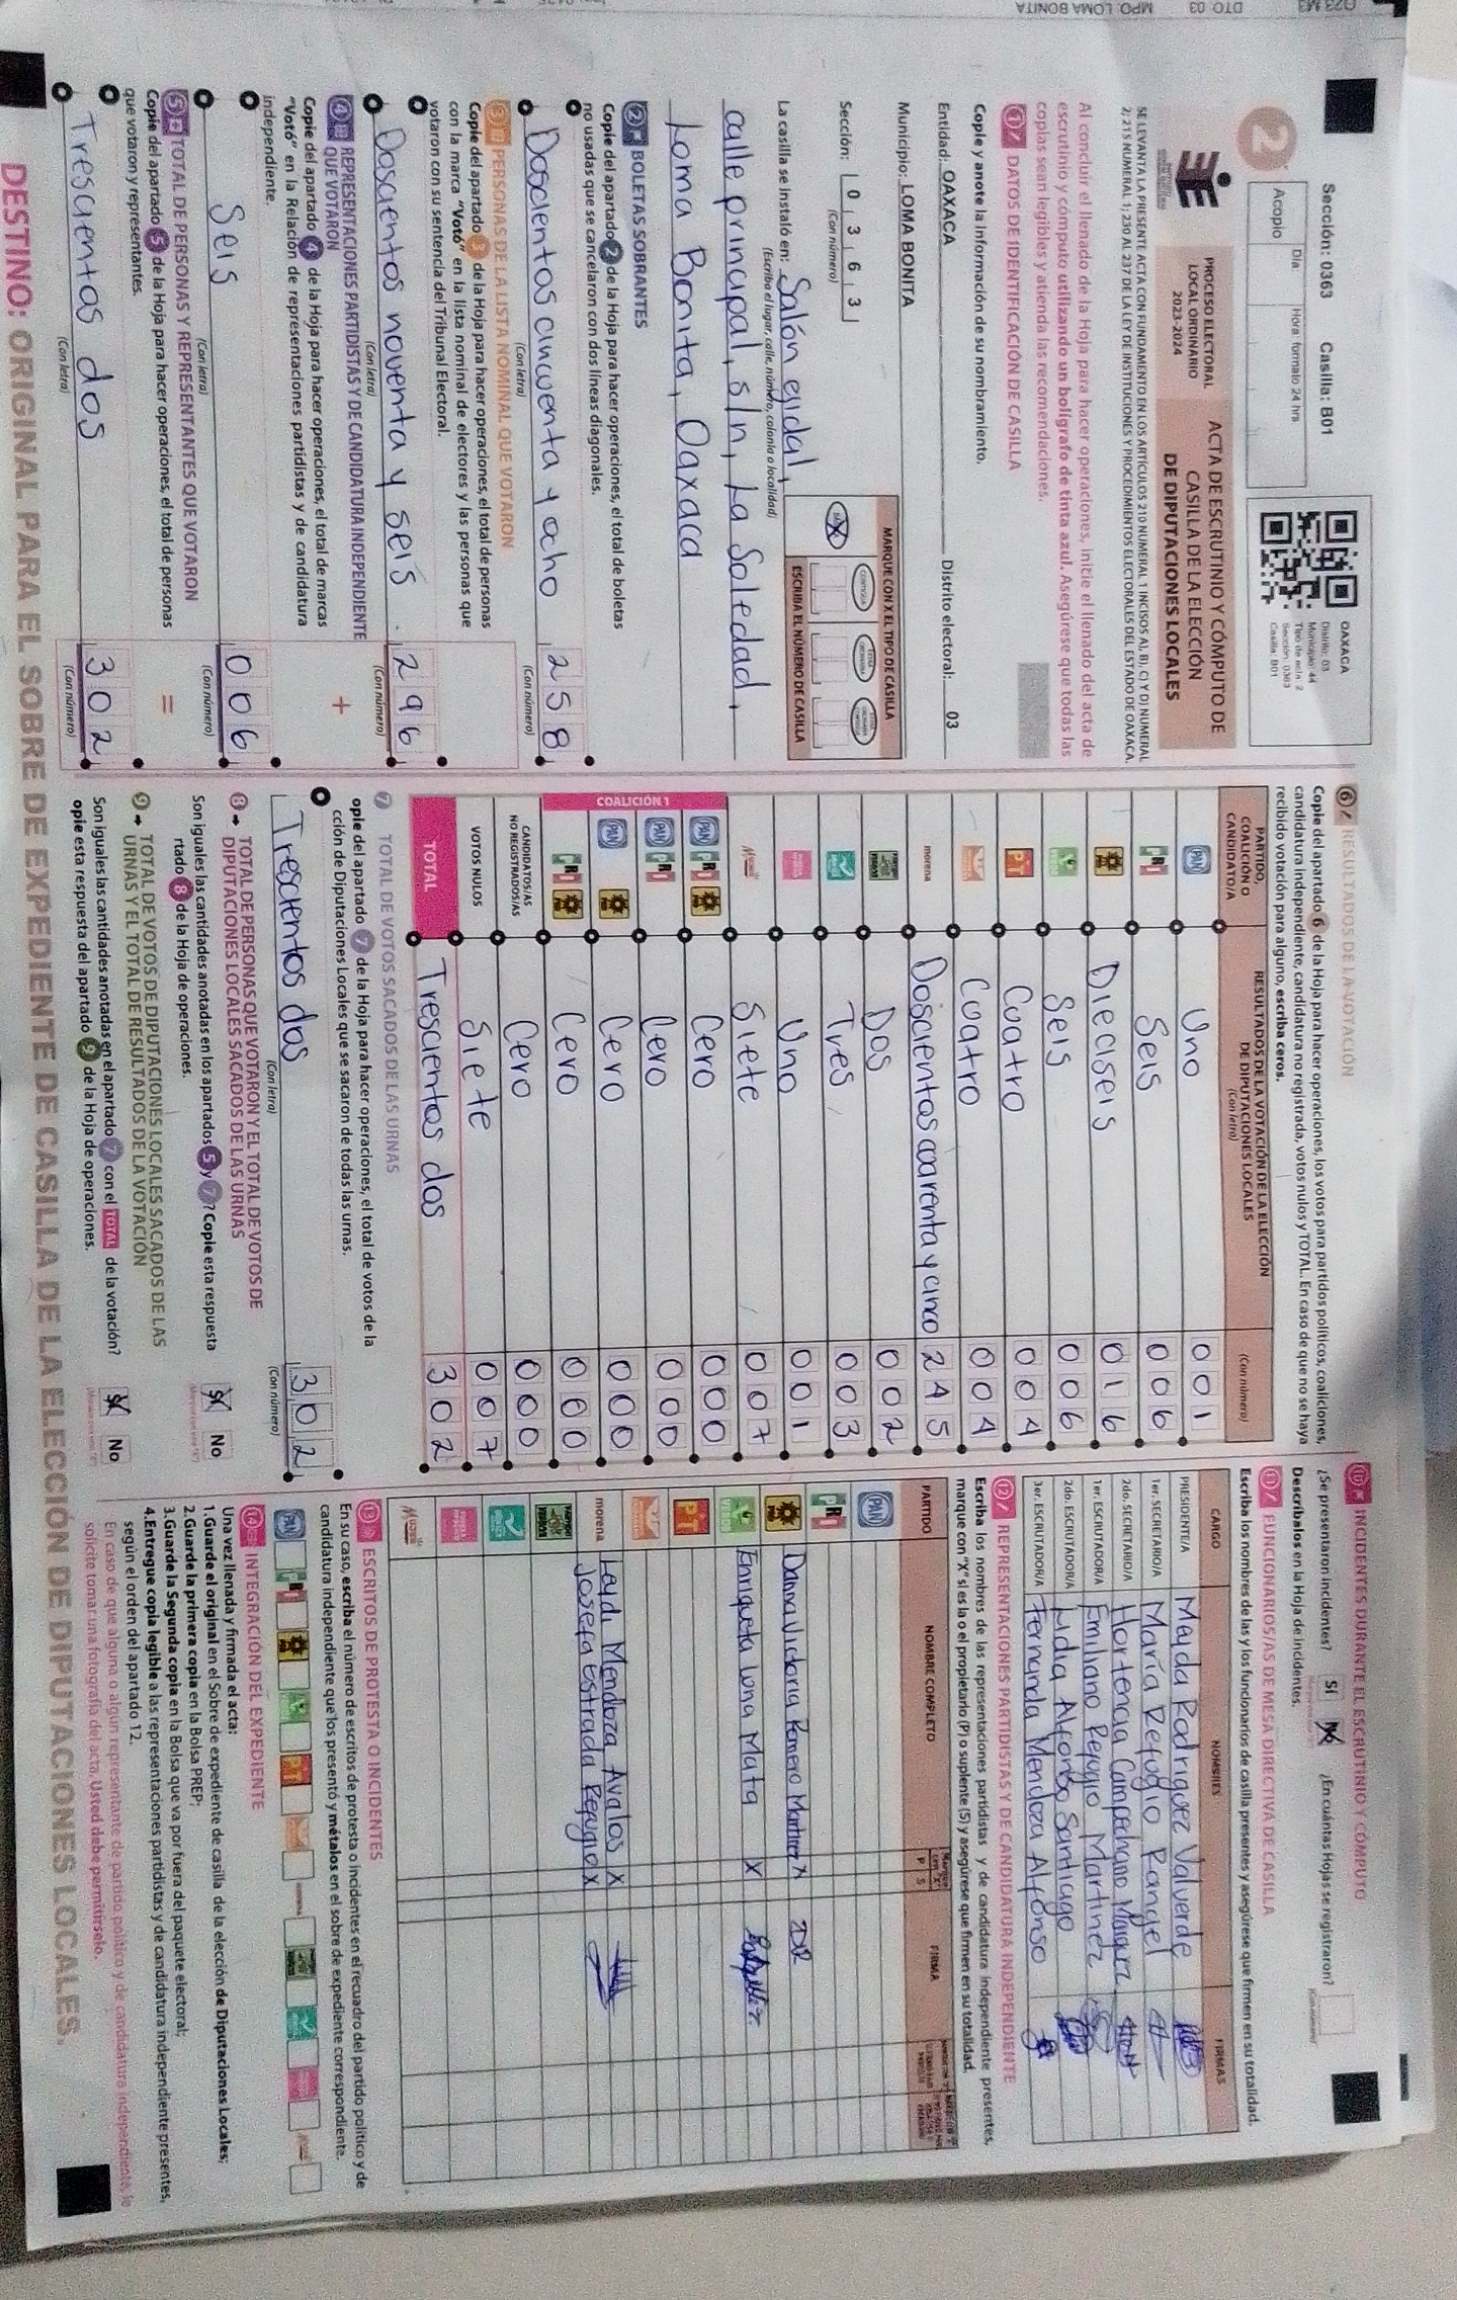 Sección: 0363 Casilla: B01
2
Acopio
Día
Hora formato 24 hrs
OAXACA
Distrito: 03
Municipio: 44
Tipo de acta: 2
Sección: 0363
Casilla: B01
PROCESO ELECTORAL
LOCAL ORDINARIO
2023-2024
ACTA DE ESCRUTINIO Y CÓMPUTO DE
CASILLA DE LA ELECCIÓN
DE DIPUTACIONES LOCALES
SE LEVANTA LA PRESENTE ACTA CON FUNDAMENTO EN LOS ARTÍCULOS 210 NUMERAL 1 INCISOS A), B), C) Y D) NUMERAL
2; 215 NUMERAL 1; 230 AL 237 DE LA LEY DE INSTITUCIONES Y PROCEDIMIENTOS ELECTORALES DEL ESTADO DE OAXACA.
Al concluir el llenado de la Hoja para hacer operaciones, inicie el llenado del acta de
escrutinio y cómputo utilizando un bolígrafo de tinta azul. Asegúrese que todas las
copias sean legibles y atienda las recomendaciones.
1 DATOS DE IDENTIFICACIÓN DE CASILLA
Copie y anote la información de su nombramiento.
Entidad: OAXACA Distrito electoral: 03
Municipio: LOMA BONITA
Sección: 0 3 6 3
(Con número)
MARQUE CON X EL TIPO DE CASILLA
ESCRIBA EL NÚMERO DE CASILLA
La casilla se instaló en: Salón ejidal,
(Escriba el lugar, calle, número, colonia o localidad)
calle principal, s/n, La Soledad,
Loma Bonita, Oaxaca
2 BOLETAS SOBRANTES
Copie del apartado 2 de la Hoja para hacer operaciones, el total de boletas
no usadas que se cancelaron con dos líneas diagonales.
Doscientos cincuenta y ocho 258
(Con letra) (Con número)
3 PERSONAS DE LA LISTA NOMINAL QUE VOTARON
Copie del apartado 3 de la Hoja para hacer operaciones, el total de personas
con la marca "Votó" en la lista nominal de electores y las personas que
votaron con su sentencia del Tribunal Electoral.
Doscientos noventa y seis. 296
(Con letra) (Con número)
4 REPRESENTACIONES PARTIDISTAS Y DE CANDIDATURA INDEPENDIENTE
QUE VOTARON
+
Copie del apartado 4 de la Hoja para hacer operaciones, el total de marcas
"Votó" en la Relación de representaciones partidistas y de candidatura
independiente.
Seis 006
(Con letra) (Con número)
5 TOTAL DE PERSONAS Y REPRESENTANTES QUE VOTARON
=
Copie del apartado 5 de la Hoja para hacer operaciones, el total de personas
que votaron y representantes.
Trescientos dos 302
(Con letra) (Con número)
6 RESULTADOS DE LA VOTACIÓN
Copie del apartado 6 de la Hoja para hacer operaciones, los votos para partidos políticos, coaliciones,
candidatura independiente, candidatura no registrada, votos nulos y TOTAL. En caso de que no se haya
recibido votación para alguno, escriba ceros.
PARTIDO,
COALICIÓN O
CANDIDATO/A
RESULTADOS DE LA VOTACIÓN DE LA ELECCIÓN
DE DIPUTACIONES LOCALES
(Con letra)
(Con número)
PAN Uno 001
PRI Seis 006
Dieciseis 016
Seis 006
PT Cuatro 004
Cuatro 004
morena Doscientos cuarenta y cinco 245
Dos 002
Tres 003
Uno 001
Siete 007
COALICIÓN 1
PAN PRI Cero 000
PAN PRI Cero 000
PAN Cero 000
PRI Cero 000
CANDIDATOS/AS
NO REGISTRADOS/AS Cero 000
VOTOS NULOS Siete 007
TOTAL Trescientos dos 302
7 TOTAL DE VOTOS SACADOS DE LAS URNAS
opie del apartado 7 de la Hoja para hacer operaciones, el total de votos de la
cción de Diputaciones Locales que se sacaron de todas las urnas.
Trescientos dos 302
(Con letra) (Con número)
8 TOTAL DE PERSONAS QUE VOTARON Y EL TOTAL DE VOTOS DE
DIPUTACIONES LOCALES SACADOS DE LAS URNAS
Son iguales las cantidades anotadas en los apartados 5 y 7? Copie esta respuesta
rtado 8 de la Hoja de operaciones.
Sí No
9 TOTAL DE VOTOS DE DIPUTACIONES LOCALES SACADOS DE LAS
URNAS Y EL TOTAL DE RESULTADOS DE LA VOTACIÓN
Son iguales las cantidades anotadas en el apartado 7 con el TOTAL de la votación?
opie esta respuesta del apartado 9 de la Hoja de operaciones.
Sí No
10 INCIDENTES DURANTE EL ESCRUTINIO Y CÓMPUTO
¿Se presentaron incidentes? SI No ¿En cuántas Hojas se registraron?
Descríbalos en la Hoja de incidentes.
11 FUNCIONARIOS/AS DE MESA DIRECTIVA DE CASILLA
Escriba los nombres de las y los funcionarios de casilla presentes y asegúrese que firmen en su totalidad.
CARGO NOMBRES FIRMAS
PRESIDENTE/A Mayda Rodriguez Valverde
1er. SECRETARIO/A María Refugio Rangel
2do. SECRETARIO/A Hortencia Campechano Marquez
1er. ESCRUTADOR/A Emiliano Refugio Martinez
2do. ESCRUTADOR/A Lidia Alfonso Santiago
3er. ESCRUTADOR/A Fernanda Mendoza Alfonso
12 REPRESENTACIONES PARTIDISTAS Y DE CANDIDATURA INDEPENDIENTE
Escriba los nombres de las representaciones partidistas y de candidatura independiente presentes,
marque con "X" si es la o el propietario (P) o suplente (S) y asegúrese que firmen en su totalidad.
PARTIDO NOMBRE COMPLETO P S FIRMA
PAN
PRI
Danna Victoria Romero Martinez X
VERDE Enriqueta Luna Mata X
PT
morena Leydi Mendoza Avalos X
Josefa Estrada Refugio X
13 ESCRITOS DE PROTESTA O INCIDENTES
En su caso, escriba el número de escritos de protesta o incidentes en el recuadro del partido político y de
candidatura independiente que los presentó y métalos en el sobre de expediente correspondiente.
PAN PRI PT
14 INTEGRACIÓN DEL EXPEDIENTE
Una vez llenada y firmada el acta:
1.Guarde el original en el Sobre de expediente de casilla de la elección de Diputaciones Locales;
2.Guarde la primera copia en la Bolsa PREP;
3.Guarde la Segunda copia en la Bolsa que va por fuera del paquete electoral;
4.Entregue copia legible a las representaciones partidistas y de candidatura independiente presentes,
según el orden del apartado 12.
En caso de que alguna o algún representante de partido político y de candidatura independiente, le
solicite tomar una fotografía del acta, Usted debe permitírselo.
DESTINO: ORIGINAL PARA EL SOBRE DE EXPEDIENTE DE CASILLA DE LA ELECCIÓN DE DIPUTACIONES LOCALES.
DTO 03 MPO: LOMA BONITA